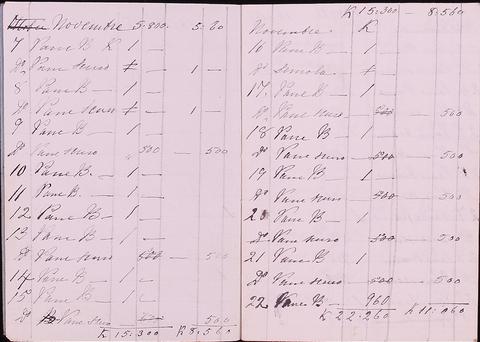 Novembre 5.800. 5.60
7 Pane B K 1 —
Dº Pane nero — 1 —
8 Pane B — 1 —
Dº Pane nero — 1 —
9 Pane B — 1 —
Dº Pane nero 500 — 500
10 Pane B. — 1 —
11 Pane B. — 1 —
12 Pane B — 1 —
13 Pane B — 1 —
Dº Pane nero 500 — 500
14 Pane B — 1
15 Pane B — 1
Dº Pane nero 500
K 15.300 K 8.560
K 15.300 — 8.560
Novembre K
16 Pane B — 1
Dº Semola —
17 Pane B — 1
Dº Pane nero — 500 — 500
18 Pane B — 1
Dº Pane nero — 500 — 500
19 Pane B 1
Dº Pane nero — 500 — 500
20 Pane B — 1
Dº Pane nero 500 — 500
21 Pane B 1
Dº Pane nero 500 — 500
22 Pane B — 960
K 22.260 K 11.060